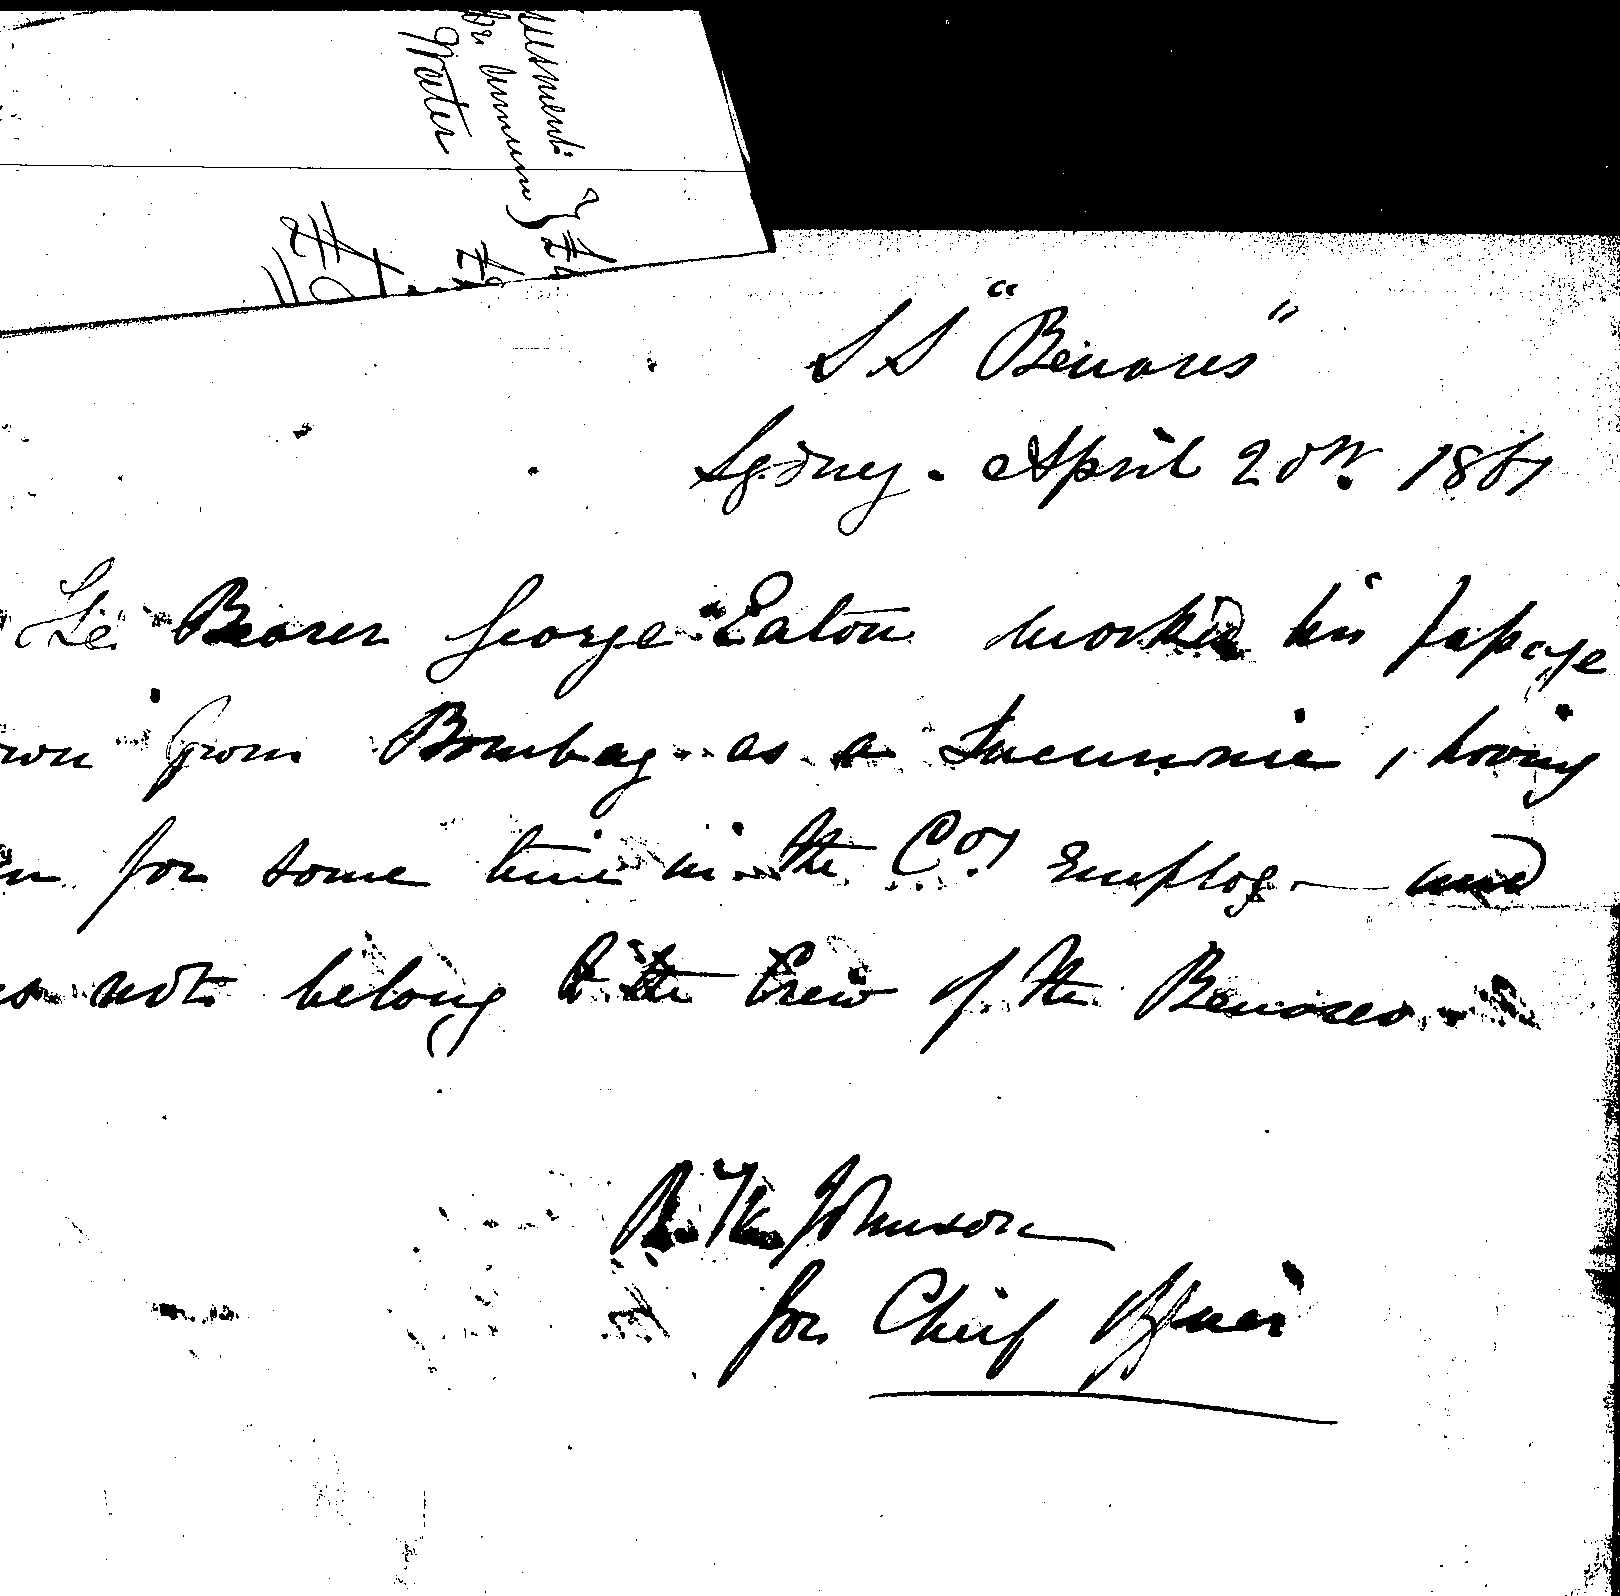 Water
SS "Benares"
Sydney. April 20th. 1861
The Bearer George Eaton worked his passage
from Bombay as a Seacunnie, having
for some time in the Coy. Employ - and
not belong to the Crew of the Benares.
Johnson
for Chief Officer